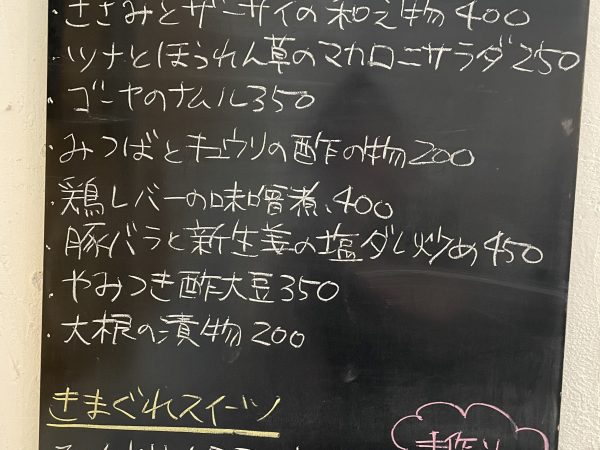 ・ささみとザーサイの和え物400
・ツナとほうれん草のマカロニサラダ250
・ゴーヤのナムル350
・みつばとキュウリの酢の物200
・鶏レバーの味噌煮、400
・豚バラと新生姜の塩ダレ炒め450
・やみつき酢大豆350
・大根の漬物200
きまぐれスイーツ